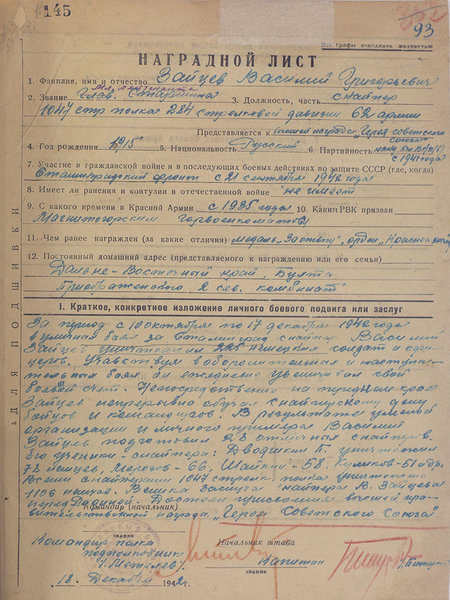 145
93
Все графы заполнять полностью
НАГРАДНОЙ ЛИСТ
1. Фамилия, имя и отчество Зайцев Василий Григорьевич
мл. лейтенант
2. Звание Глав. старшина 3. Должность, часть снайпер
1047 стр полка 284 стрелковой дивизии 62 армии
Представляется к Герой Советского
Союза
4. Год рождения 1915 5. Национальность Русский 6. Партийность
с 1941 года
7. Участие в гражданской войне и в последующих боевых действиях по защите СССР (где, когда)
Сталинградский фронт с 21 сентября 1942 года
8. Имеет ли ранения и контузии в отечественной войне не имеет
9. С какого времени в Красной Армии с 1935 года 10. Каким РВК призван
Магнитогорским горвоенкоматом
11. Чем ранее награжден (за какие отличия) медаль, орден
12. Постоянный домашний адрес (представляемого к награждению или его семьи)
Дальне-Восточный край, бухта
Преображенского комбинат
I. Краткое, конкретное изложение личного боевого подвига или заслуг
За период с 10 октября по 17 декабря 1942 года
в уличных боях за Сталинград снайпер Василий
Зайцев уничтожил немецких солдат и офи-
церов. Участвуя в оборонительных и наступа-
тельных боях он ежедневно увеличивал свой
боевой счет. Непосредственно на переднем крае
Зайцев непрерывно обучал снайперскому делу
бойцов и командиров. В результате умелой
организации и личного примера Василий
Зайцев подготовил 28 отличных снайперов.
Его ученики - снайпера: Двояшкин П. уничтожил
78 немцев, Морозов - 66, Шайкин - 58, Куликов - 51 и др.
Всеми снайперами 1047 стрелк. полка уничтожено
1106 немцев. Велика заслуга снайпера В. Зайцева
перед Родиной. Достоин присвоения высшей пра-
Командир (начальник)
вительственной награды „Герой Советского Союза"
Командир полка Начальник штаба
звание
подполковник Капитан
звание
/Метелев/
18 Декабря 1942 г.
ДЛЯ ПОДШИВКИ